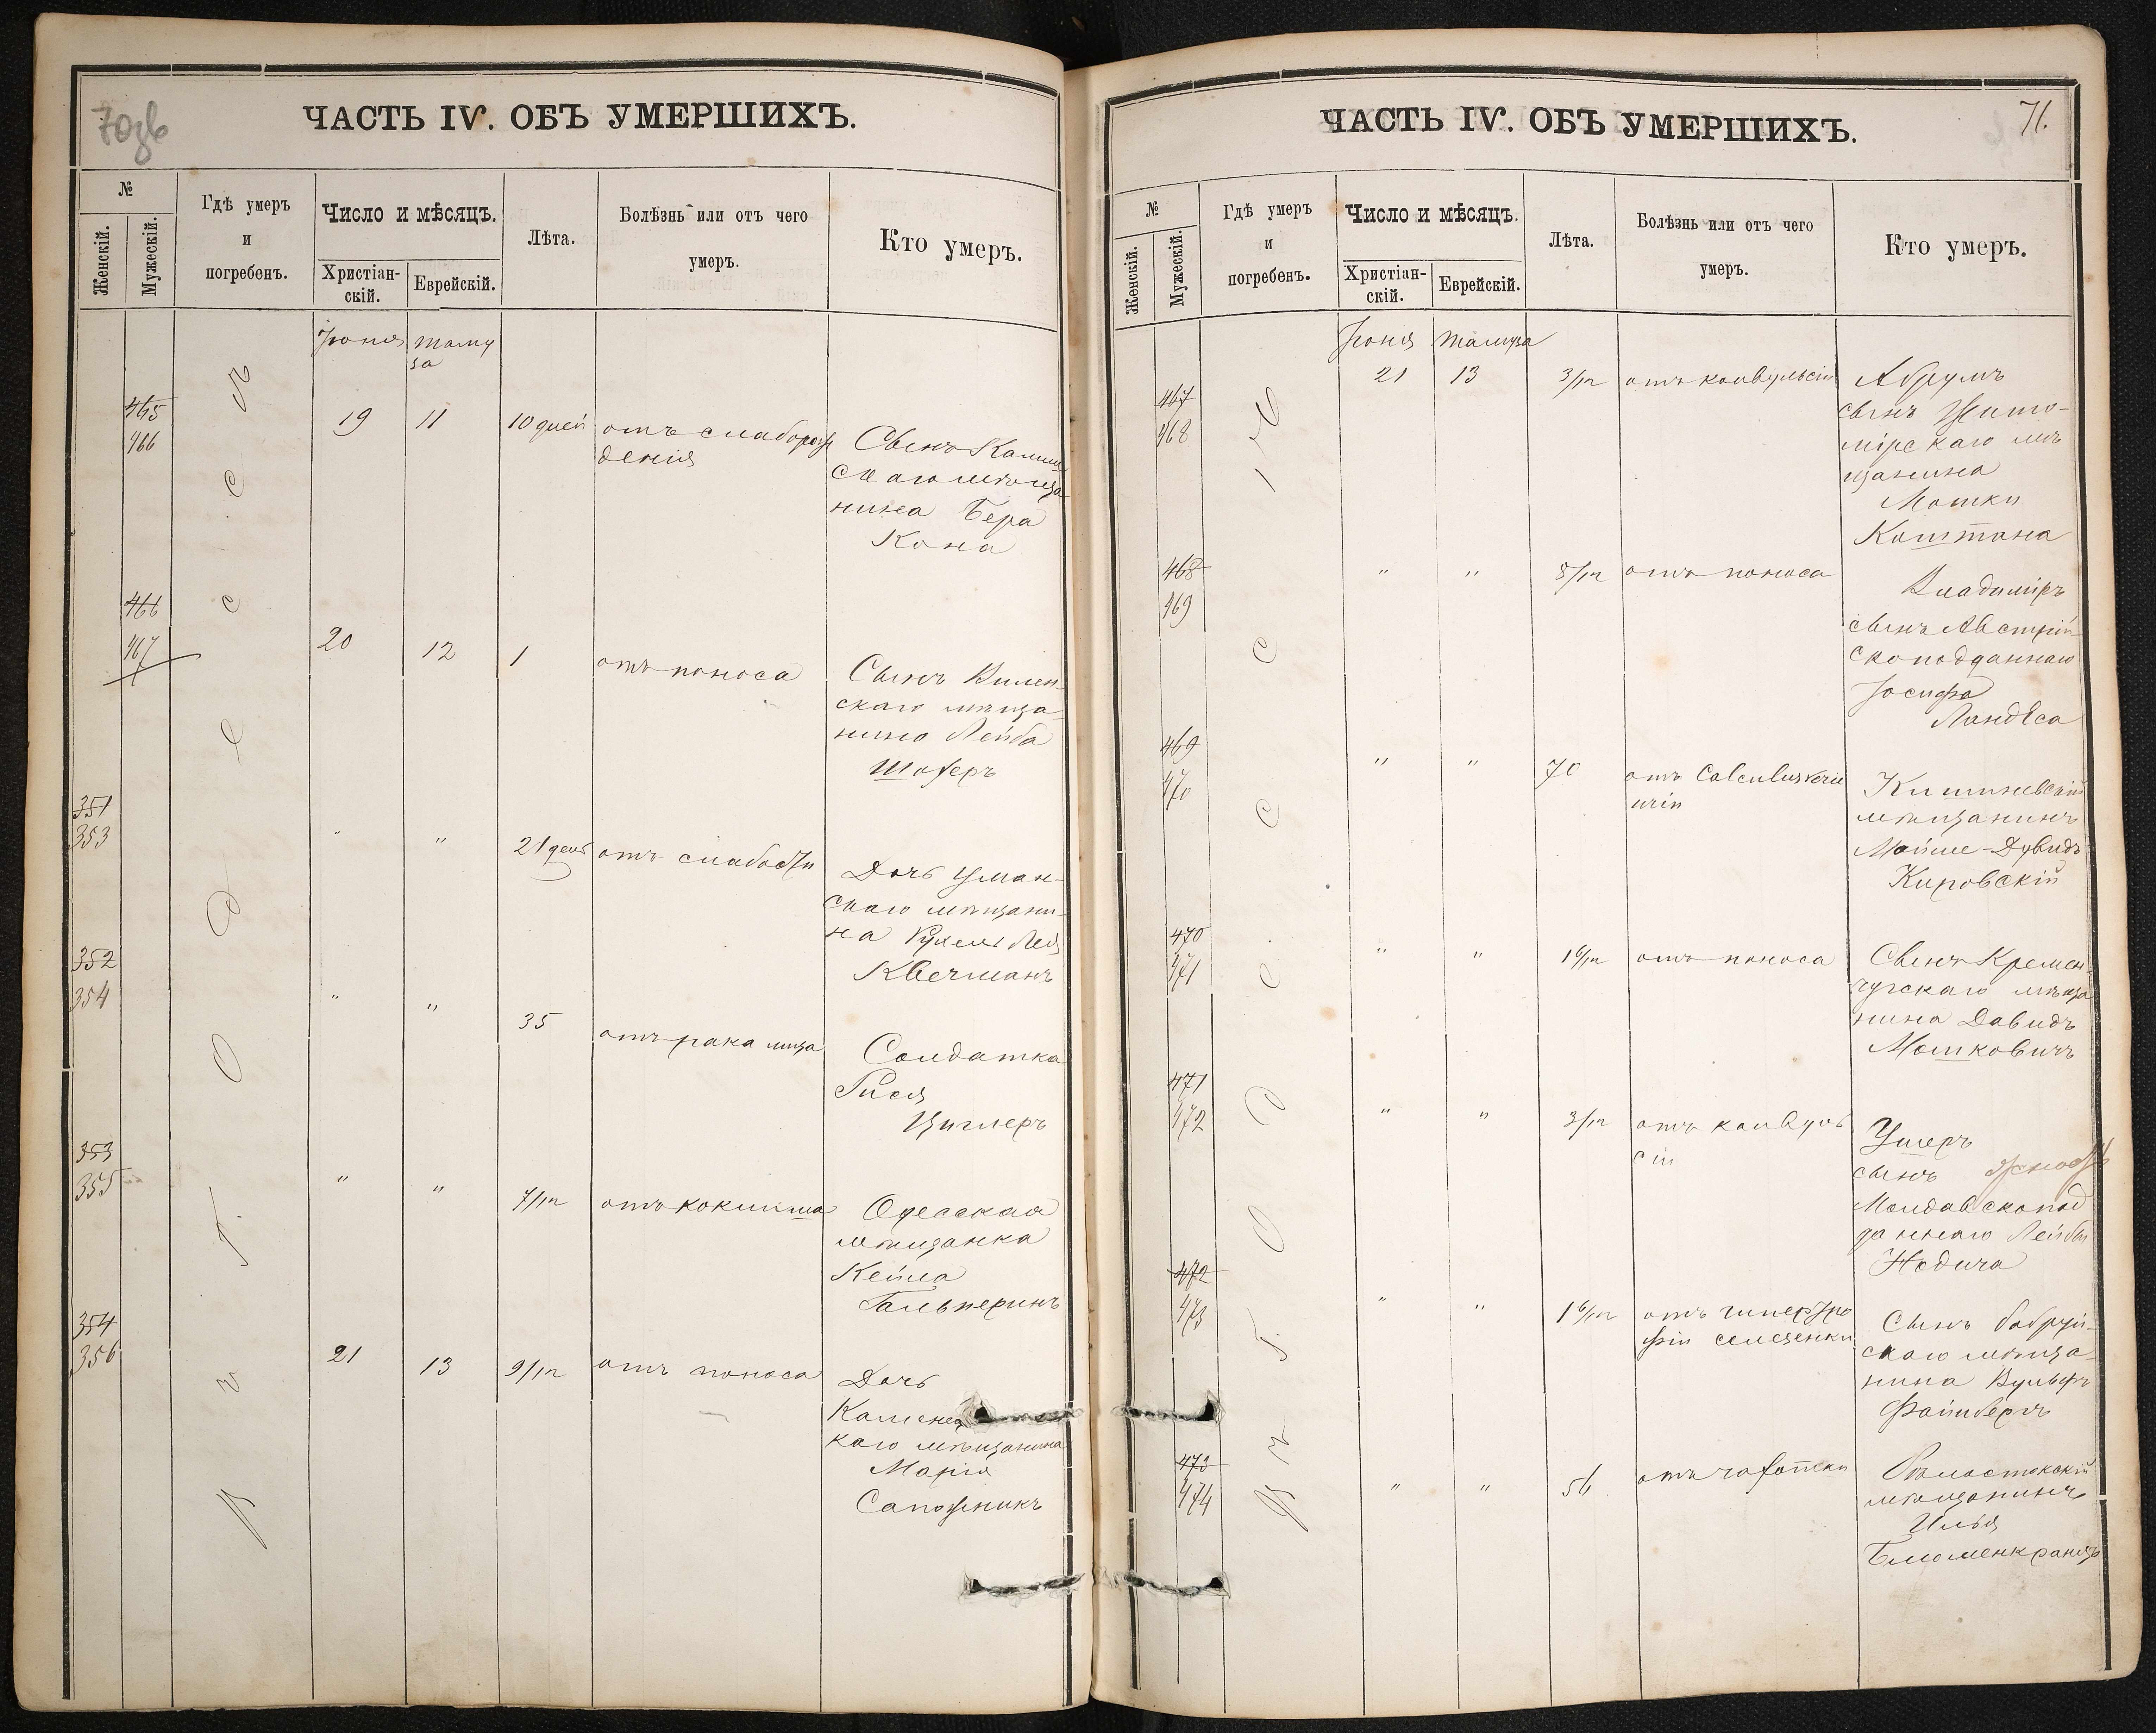 70об
ЧАСТЬ IV. ОБЪ УМЕРШИХЪ.
№
Женскій.
Мужескій.
Гдѣ умеръ
и
погребенъ.
Число и мѣсяцъ.
Христіан-
скій.
Еврейскій.
Лѣта.
Болѣзнь или отъ чего
умеръ.
Кто умеръ.
Іюня
таму
за
465
466
19
11
10 дней
отъ слаборож
денія
Сынъ Камин
скаго мѣща
нина Бера
Кона
466
467
20
12
1
отъ поноса
Сынъ Вилен-
скаго мѣща-
нина Лейба
Шохеръ
351
353
"
"
21 день
отъ слабости
Дочь Уман-
скаго мѣщани-
на Рухель Лея
Квечманъ
352
354
"
"
35
отъ рака лица
Солдатка
Рися
Циглеръ
353
355
"
"
7/12
отъ коклиша
Одесская
мѣщанка
Кейла
Гальперинъ
354
356
21
13
9/12
отъ поноса
Дочь
Каменец
каго мѣщанина
Марія
Сапожникъ
71.
ЧАСТЬ IV. ОБЪ УМЕРШИХЪ.
№
Женскій.
Мужескій.
Гдѣ умеръ
и
погребенъ.
Число и мѣсяцъ.
Христіан-
скій.
Еврейскій.
Лѣта.
Болѣзнь или отъ чего
умеръ.
Кто умеръ.
Іюня
тамуза
467
468
21
13
3/12
отъ конвульсіи
Абрумъ
сынъ Жито-
мірскаго мѣ
щанина
Мошки
Коштана
468
469
"
"
5/12
отъ поноса
Владиміръ
сынъ Австрій-
скоподданнаго
Іосифа
Ландеса
469
470
"
"
70
отъ Calculus
Кишиневскій
мѣщанинъ
Мойше-Дувидъ
Кировскій
470
471
"
"
1 6/12
отъ поноса
Сынъ Кремен-
чугскаго мѣща
нина Давидъ
Мошковичъ
471
472
"
"
3/12
отъ конвуль
сіи
Ушеръ
сынъ
Молдавскопод
даннаго Лейбы
Нодича
472
473
"
"
1 6/12
отъ гипертро
фіи селезенки
Сынъ бобруй-
скаго мѣща-
нина Вульфъ
Файнбергъ
473
474
"
"
56
отъ чахотки
Бѣлостокскій
мѣщанинъ
Илья
Блюменкранцъ